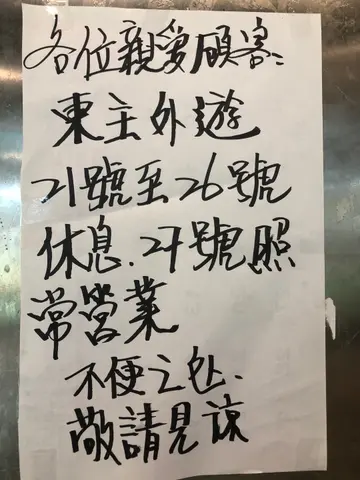 各位親愛顧客:
東主外遊
21號至26號
休息.27號照
常營業
不便之处、
敬請見諒